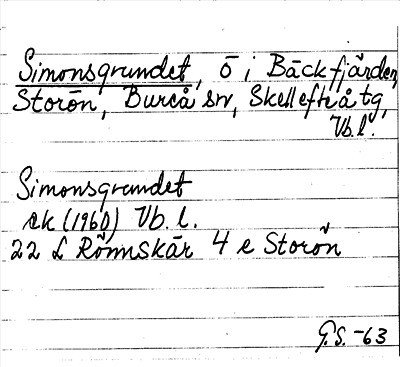 Simonsgrundet, ö i Bäckfjärden,
Storön, Bureå sn, Skellefteå tg,
Vb.l.
Simonsgrundet
ek (1960) Vb. l.
22 L Rönnskär 4 e Storön
G.S. -63